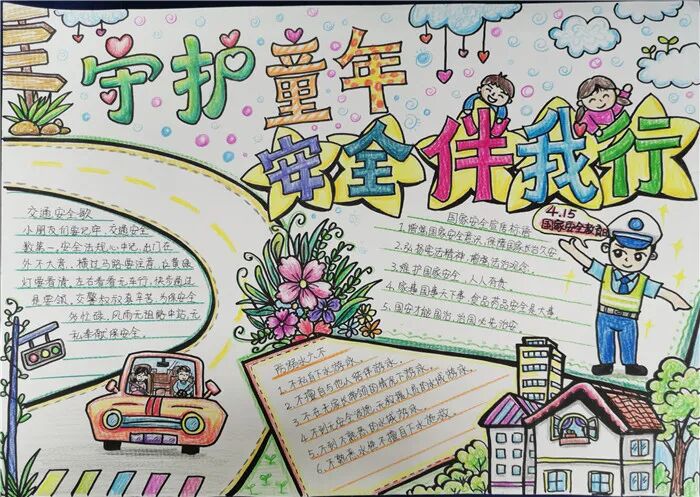 守护童年
安全伴我行
交通安全歌
小朋友们要记牢,交通安全
数第一,安全法规心中记,出门在
外不大意,横过马路要注意,红黄绿
灯要看清,左右看看无车行,快步通过
是要领,交警叔叔真辛苦,为保安全
多忙碌,风雨无阻路中站,无
私奉献保安全。
国家安全宣传标语
1.增强国家安全意识,保障国家长治久安
2.弘扬宪法精神,增强法治观念。
3.维护国家安全,人人有责。
4.家事国事天下事,食品药品安全是大事
5.国安才能国治,治国必先治安
4.15
国家安全教育
防溺水六不
1.不私自下水游泳。
2.不擅自与他人结伴游泳。
3.不在无家长带领的情况下游泳。
4.不到无安全设施、无救援人员的水域游泳。
5.不到不熟悉的水域游泳。
6.不熟悉水性不擅自下水施救。